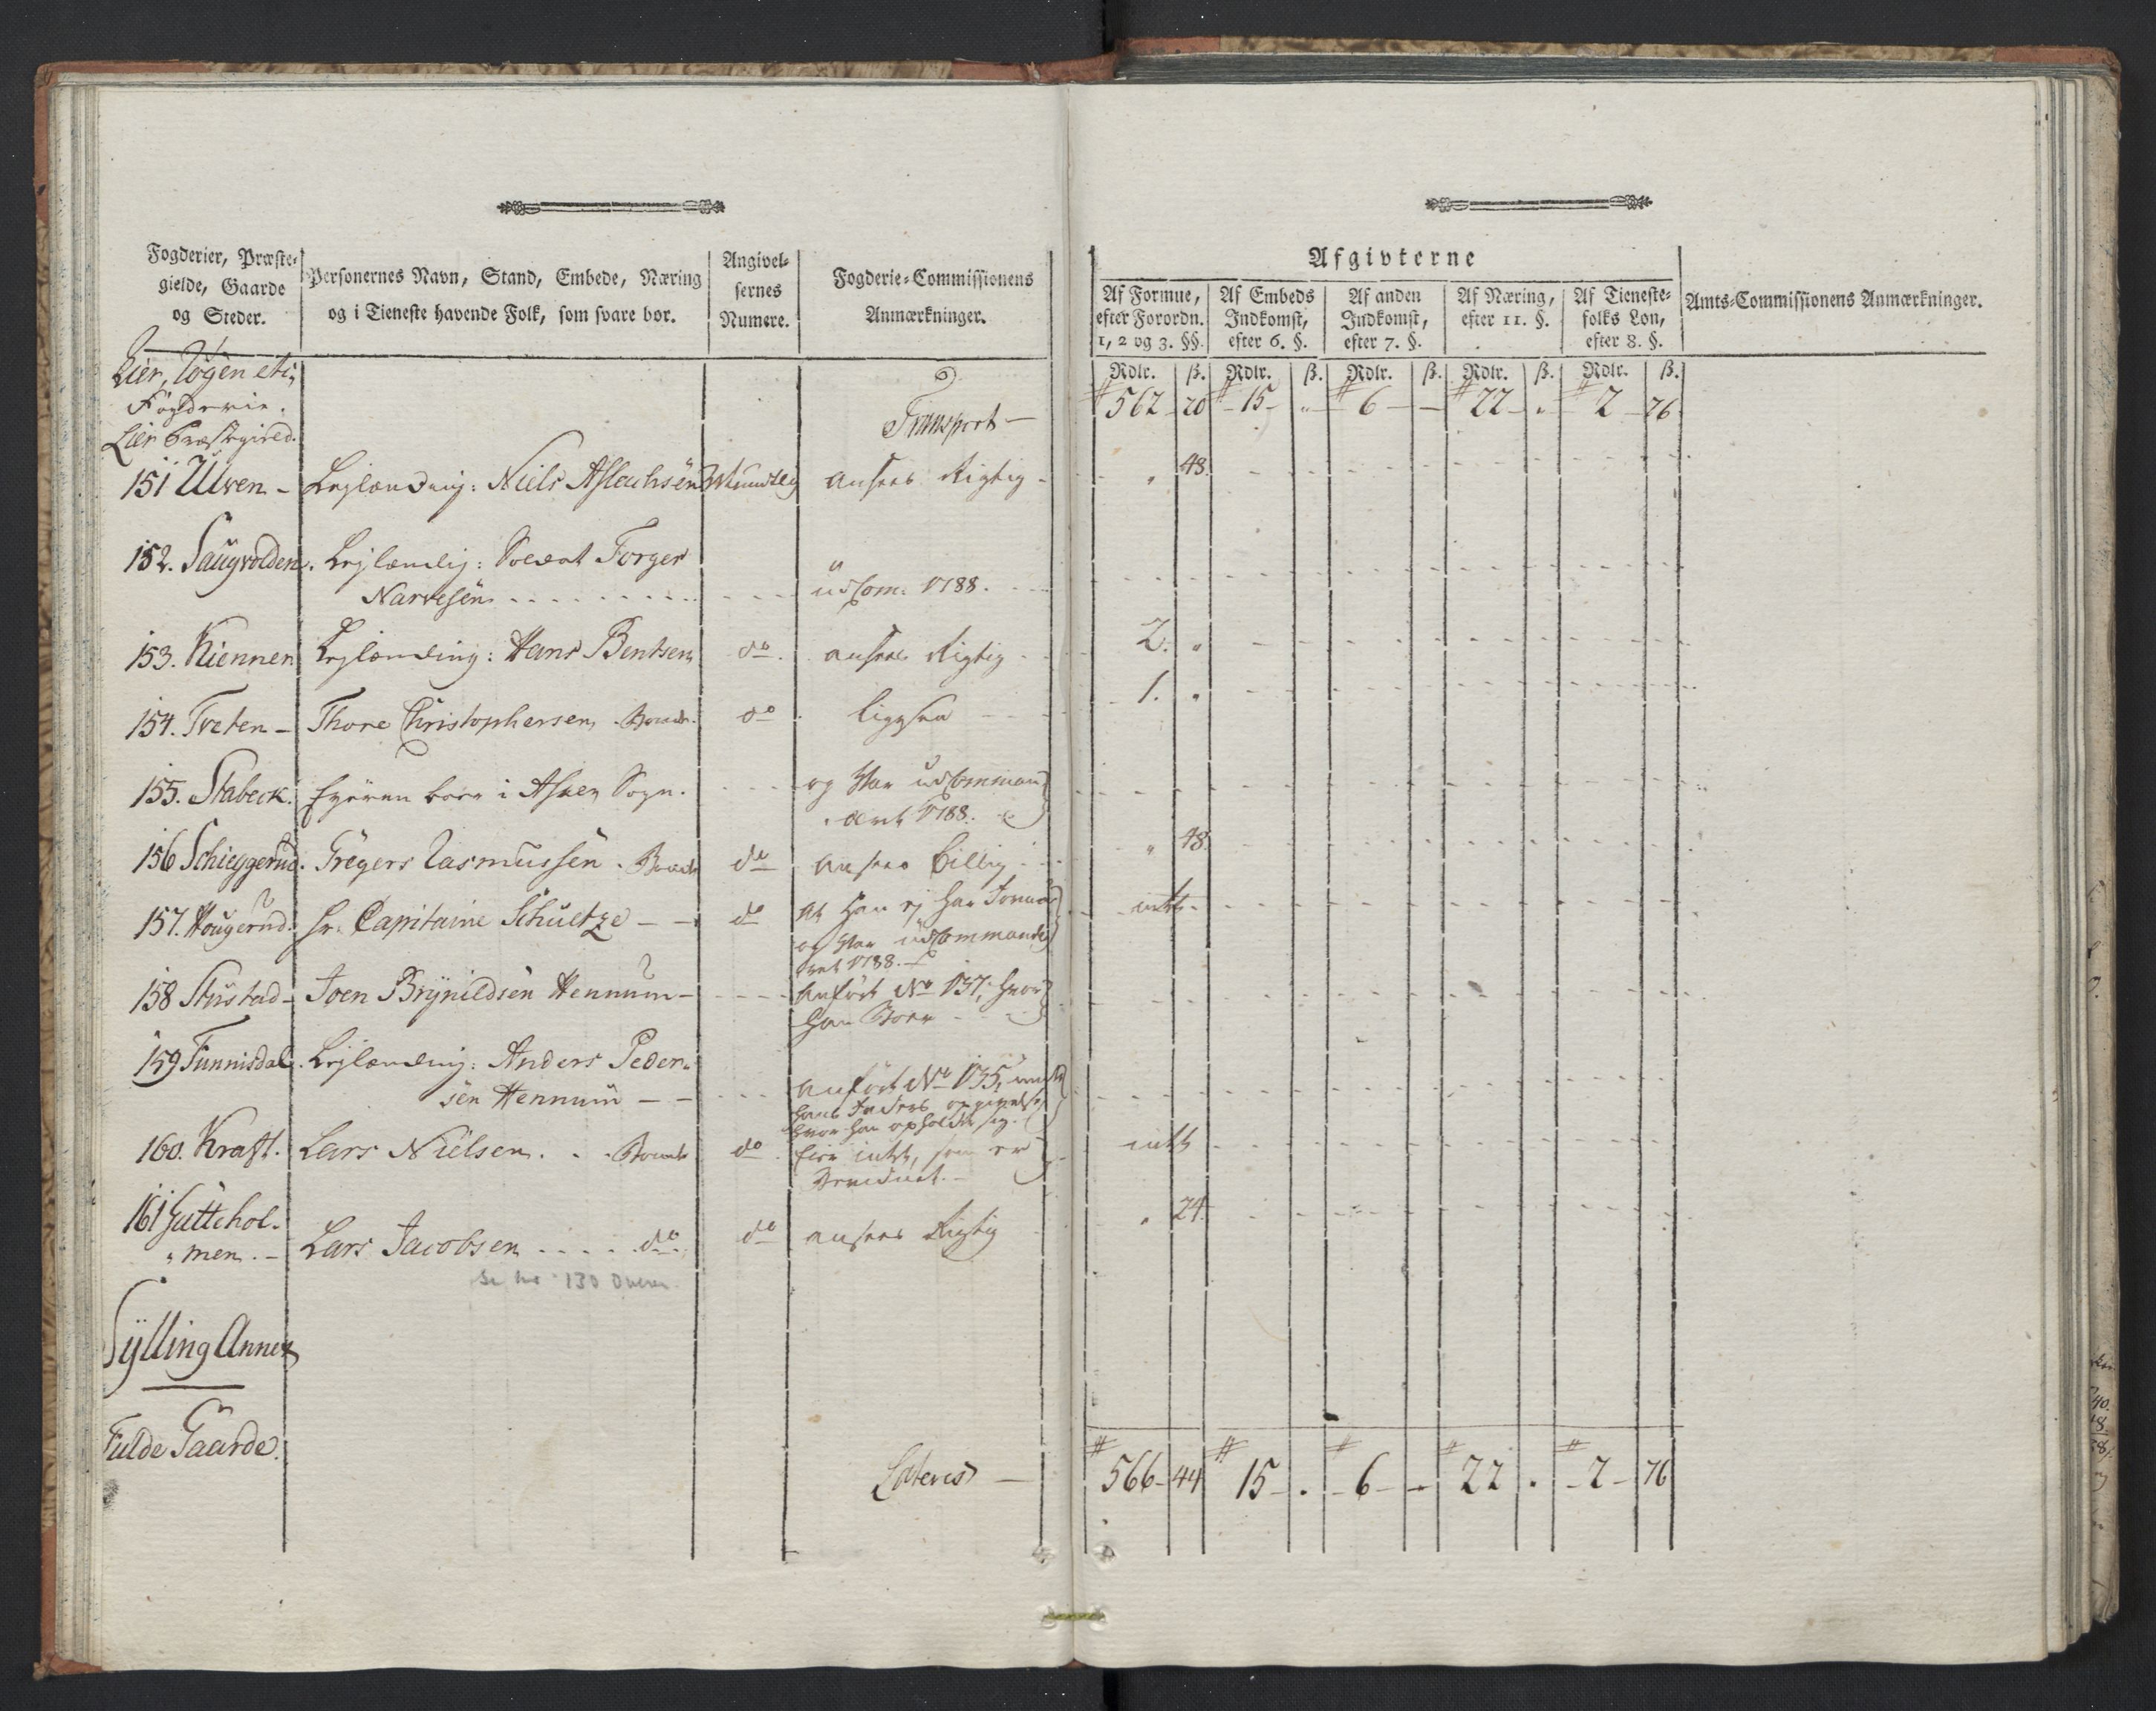 Fogderier, Præste-
gielde, Gaarde
og Steder.
Personernes Navn, Stand, Embede, Næring
og i Tieneste havende Folk, som svare bør.
Angivel-
sernes
Numere.
Fogderie-Commissionens
Anmærkninger.
Afgivterne
Af Formue,
efter Forordn.
1, 2 og 3. §§.
Af Embeds
Indkomst,
efter 6. §.
Af anden
Indkomst,
efter 7. §.
Af Næring,
efter 11. §.
Af Tieneste-
folks Løn,
efter 8. §.
Amts-Commissionens Anmærkninger.
Rdlr. ß. Rdlr. ß. Rdlr. ß. Rdlr. ß. Rdlr. ß.
Lier, Røgen etc:
Fogderie.
Lier Præstegield.
Transport — 562 - 20 15 - " 6 - - 22 - " 2 - 76
151 Ulven - Lejlænding: Niels Aslachsen Mundtlig ansees Rigtig - " 48.
152. Saugvolden. Lejlændig: Soldat Torger
Narvesen . . . . . . . . . udcom: 1788.
153. Kiennen Lejlænding: Hans Bentsen do. ansees Rigtig 2. "
154. Tveten - Thore Christophersen. Bonde. do. ligesaa 1. "
155. Stabeck. Ejeren boer i Asker Sogn. og Var udComman-
deret 1788.
156 Schieggerud. Gregers Rasmussen. Bonde do ansees billig " 48.
157. Hougerud. Hr. Capitaine Schultze - - do At han ej har Formue
og Var udCommande-
ret 1788. intet -
158 Stustad - Joen Brynildsen Hennum - Anført No 137, hvor
han Boer
159 Tunnisdal. Lejlænding: Anders Peder-
sen Hennum - - Anført No 135,
hans Faders opgivelse
hvor han opholder sig.
160. Kraft. Lars Nielsen. . . Bonde do. Eier intet, som er
Beviidnet. intet
161 Gutthol-
" men. - Lars Jacobsen . . . . do. do ansees Rigtig " 24.
Se no 130 Overen
Sylling Annex
Fulde Gaarde.
Lateris — 566 - 44 15 - . 6 - - 22 . 2 - 76